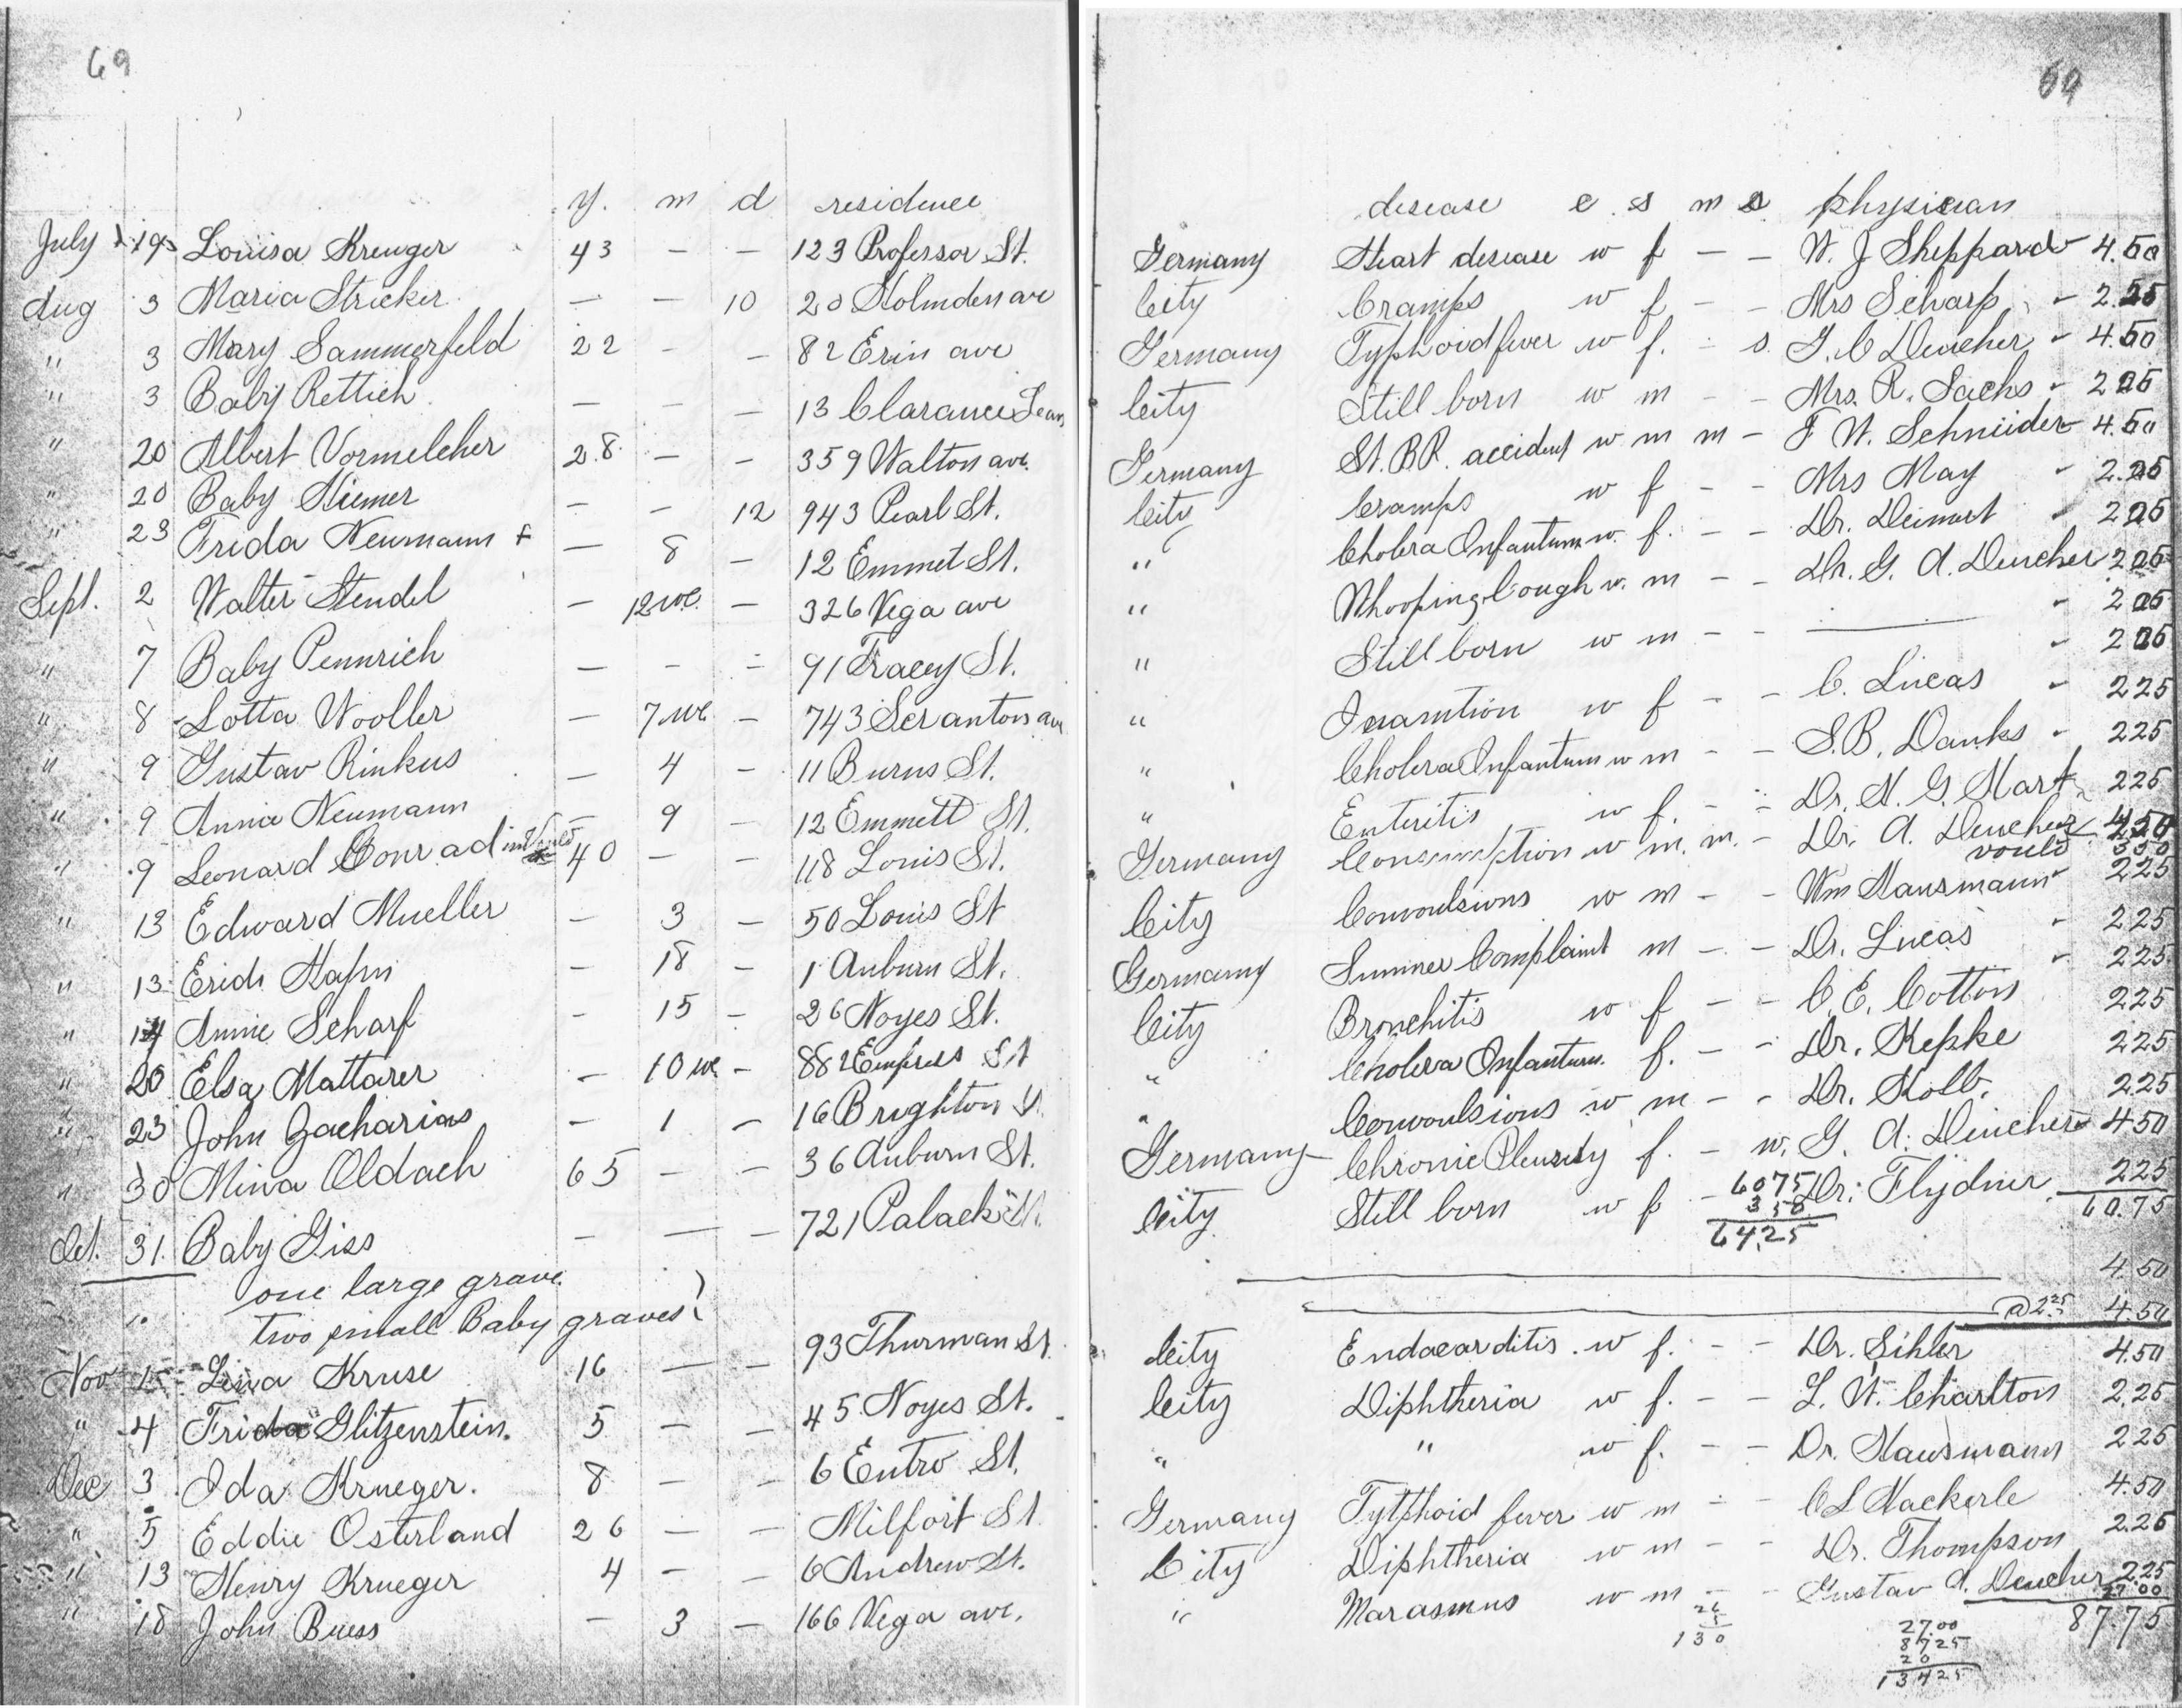 69
y. m d residence
July 19 Louisa Kreuger 43 — — 123 Professor St.
Aug 3 Maria Stricker — — 10 20 Holmden ave
" 3 Mary Sammerfeld 22 - — 82 Erin ave
" 3 Baby Rettich — — — 13 Clarance
" 20 Albert Vormelcher 28 — — 359 Walton ave.
" 20 Baby Hiemer — — 12 943 Pearl St.
" 23 Frida Neumann + — 8 — 12 Emmet St.
Sept. 2 Walter Stendel — 12 we. — 326 Vega ave
" 7 Baby Pennrich — - - 91 Tracey St.
" 8 Lotta Wooller — 7 we — 743 Scranton ave
" 9 Gustav Rinkus — 4 — 11 Burns St.
" 9 Anna Neumann — 9 — 12 Emmett St.
" 9 Leonard Conrad 40 — — 118 Louis St.
" 13 Edward Mueller — 3 — 50 Louis St
" 13 Erich Hahn — 18 — 1 Auburn St.
" 14 Annie Scharf - 15 - 26 Noyes St.
" 20 Elsa Mattarer — 10 we - 882 Empress St
" 23 John Zacharias — 1 — 16 Brighton St.
" 30 Mina Oldach 65 — — 36 Auburn St.
Oct. 31. Baby Giss — — — 721 Palack St.
one large grave.
" two small Baby graves
Nov 15 Lina Kruse 16 — — 93 Thurman St.
" 4 Frida Glitzenstein. 5 — — 45 Noyes St.
Dec 3 Ida Krueger. 8 — — 6 Entro St.
" 5 Eddie Osterland 26 — — Milfort St.
" 13 Henry Krueger 4 — — 6 Andrew St.
" 18 John Buess — 3 — 166 Vega ave.
69
disease c. s m s. physician
Germany Heart desease w f — — W. J Sheppard 4.50
City Cramps w f — — Mrs Scharf 2.25
Germany Typhoid fever w f. - s. G. C Deucher 4.50
City Still born w m - — Mrs. R. Sachs 225
Germany St. R.R. accident w m m — F W. Schnüider 4.50
City Cramps w f - - Mrs May 2.25
" Cholera Infantum w. f. - — Dr. Deinert 225
" Whooping Cough w. m — — Dr. G. A. Deucher 225
" Still born w m - - —— 225
225
" Inanition w f - - C. Lucas 225
" Cholera Infantum w m - — S.B. Danks 225
" Enteritis w f. - - Dr. H. G. Hart 225
Germany Consumption w m. m. - Dr. A. Deucher 450
vould 350
City Convoulsions w m - - Wm Hausmann 225
Germany Summer Complaint m - — Dr. Lucas 225
225
City Bronchitis w f — - C. E. Cotton 225
" Cholera Infantum. f. — - Dr. Kepke 225
" Convoulsions w m — - Dr. Kolb. 225
Germany Chronic Pleuresy f. - w. G. A. Deucher 450
City Still born w f - Dr. Flydner 225
6075
350
64.25
60.75
4.50
@ 2.25 4.50
City Endocarditis w f. - - Dr. Sihler 4.50
City Diphtheria w f. — — L. W. Charlton 2.25
" " w f. - — Dr. Hausmann 225
Germany Tytphoid fever w m - - C L Nackerle 4.50
City Diphtheria w m - - Dr. Thompson 2.25
" Marasmus w m - - Gustav A. Deucher 2.25
27.00
87.75
26
5
130
27.00
8725
20
13425